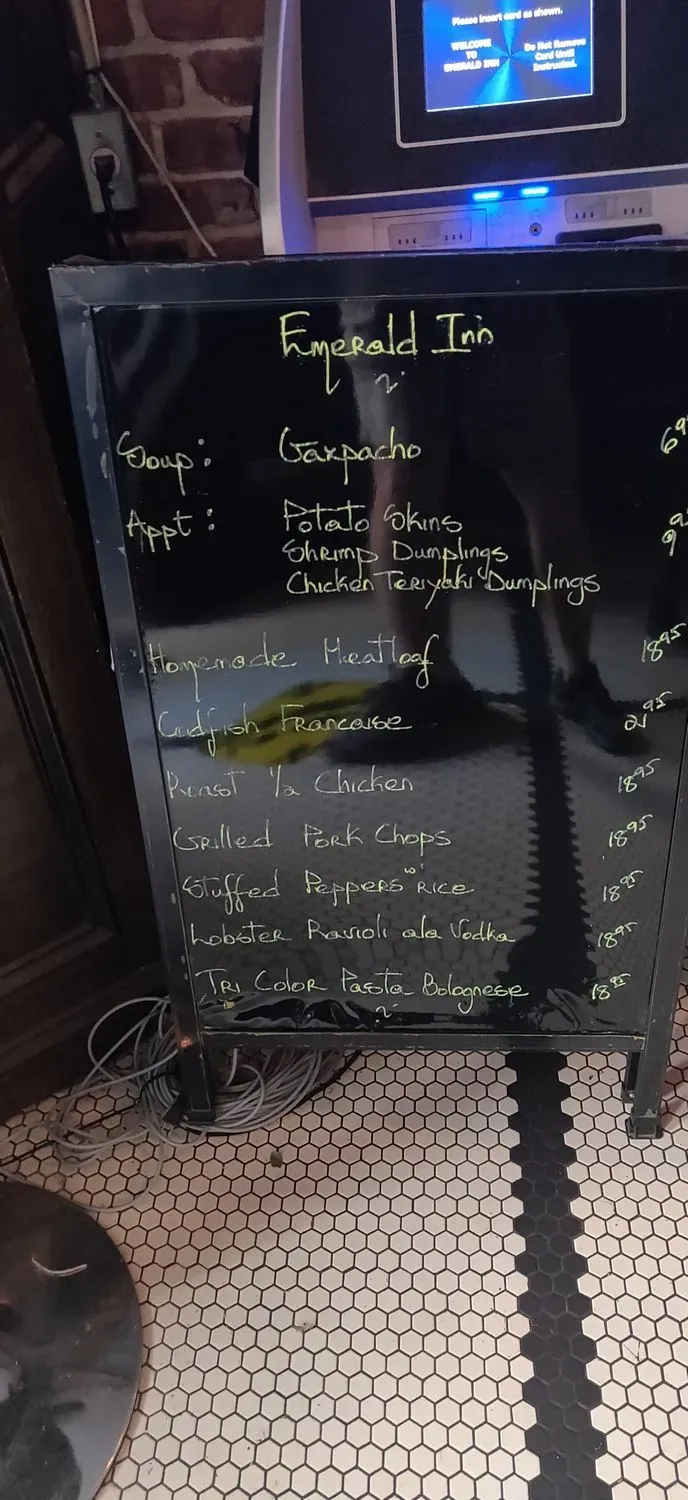 Please insert card as shown.
WELCOME
TO
EMERALD INN
Do Not Remove
Card Until
Instructed.
Emerald Inn
Soup: Gazpacho
Appt: Potato Skins 9
Shrimp Dumplings
Chicken Teriyaki Dumplings
Homemade Meatloaf 18 95
Codfish Francaise 21 95
Roast 1/2 Chicken 18 95
Grilled Pork Chops 18 95
Stuffed Peppers w/ Rice 18 95
Lobster Ravioli ala Vodka 18 95
Tri Color Pasta Bolognese 18 95